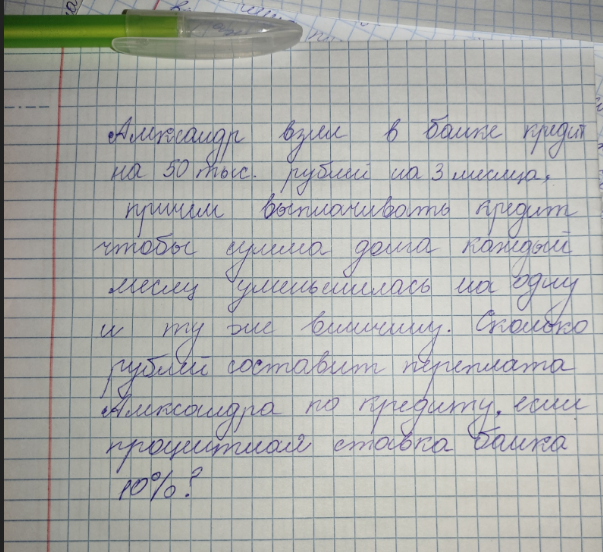 Александр взял в банке кредит
на 50 тыс. рублей на 3 месяца,
причем выплачивать кредит
чтобы сумма долга каждый
месяц уменьшилась на одну
и ту же величину. Сколько
рублей составит переплата
Александра по кредиту, если
процентная ставка банка
10%?